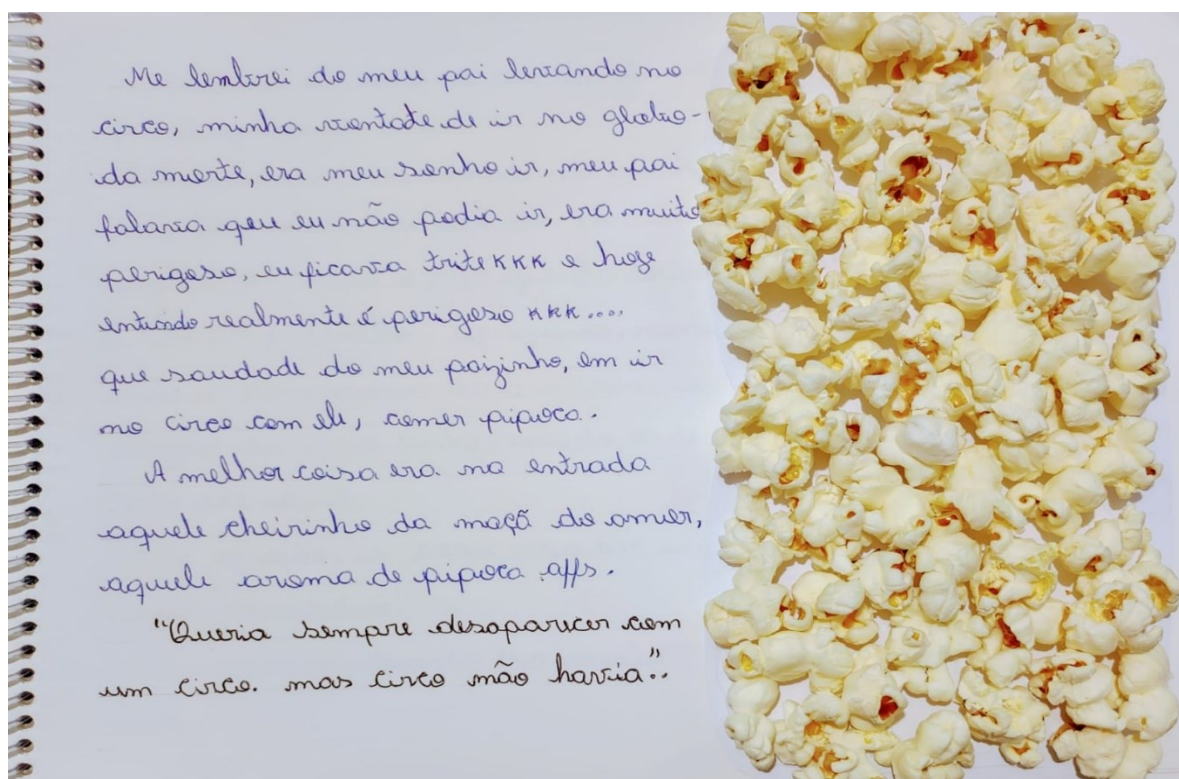 Me lembrei do meu pai levando no
circo, minha vontate de ir no globo-
da morte, era meu sonho ir, meu pai
falava qeu eu não podia ir, era muito
perigoso, eu ficava trite KKK e hoje
entendo realmente é perigoso KKK....
que saudade do meu paizinho, em ir
no circo com ele, comer pipoca.
A melhor coisa era na entrada
aquele cheirinho da maçã do amor,
aquele aroma de pipoca affs.
"Queria sempre desaparecer com
um circo. mas circo não havia"..